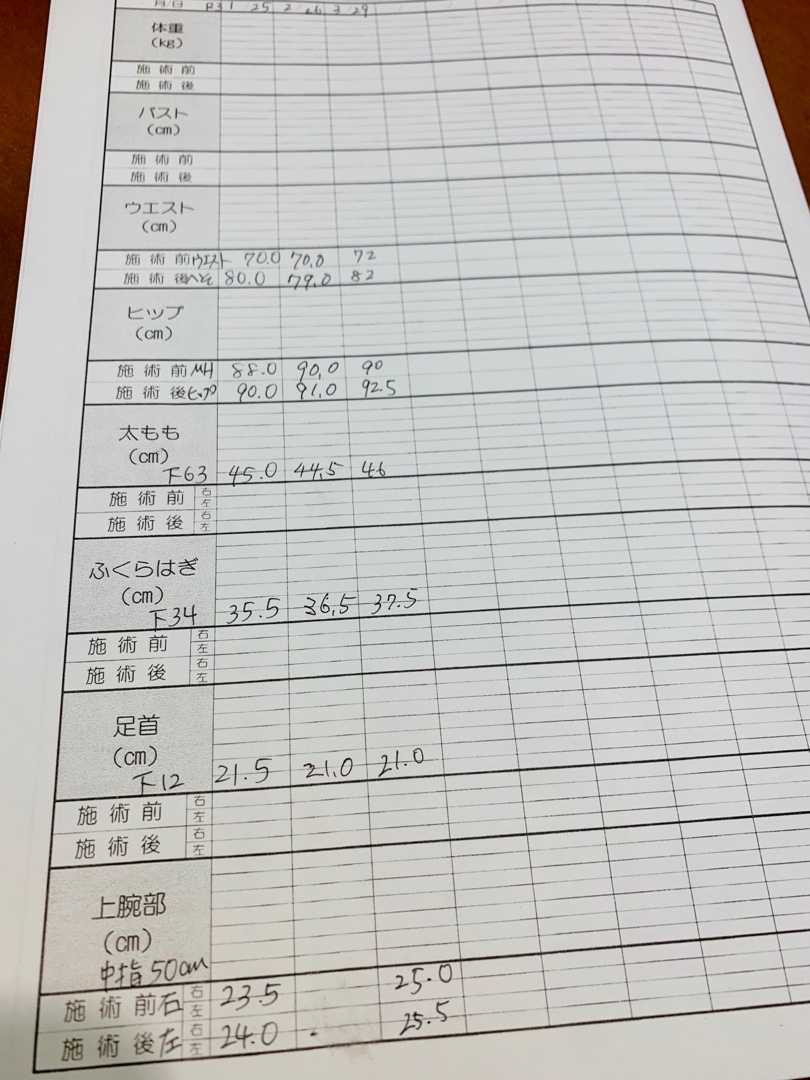 月日 R3 1 25 2 26 3 29
体重
(kg)
施術前
施術後
バスト
(cm)
施術前
施術後
ウエスト
(cm)
施術前 ウエスト 70.0 70.0 72
施術後 へそ 80.0 79.0 82
ヒップ
(cm)
施術前 MH 88.0 90.0 90
施術後 ヒップ 90.0 91.0 92.5
太もも
(cm)
下63 45.0 44.5 46
施術前 右
左
施術後 右
左
ふくらはぎ
(cm)
下34 35.5 36.5 37.5
施術前 右
左
施術後 右
左
足首
(cm)
下12 21.5 21.0 21.0
施術前 右
左
施術後 右
左
上腕部
(cm)
中指50cm
施術前 右 右 23.5 25.0
左
施術後 左 右 24.0 25.5
左